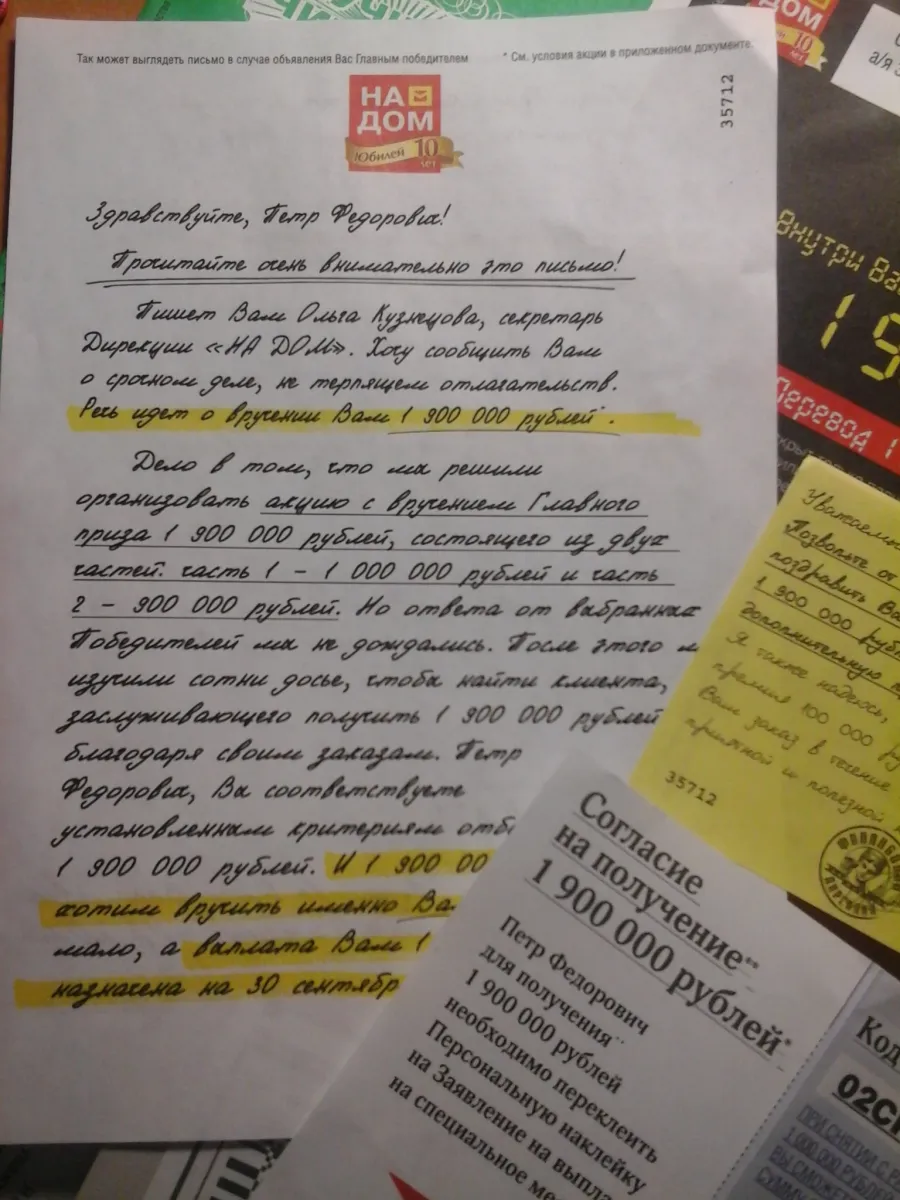 Так может выглядеть письмо в случае объявления Вас Главным победителем
* См. условия акции в приложенном документе.
35712
НА
ДОМ
Юбилей 10 лет
Здравствуйте, Петр Федорович!
Прочитайте очень внимательно это письмо!
Пишет Вам Ольга Кузнецова, секретарь
Дирекции «НА ДОМ». Хочу сообщить Вам
о срочном деле, не терпящем отлагательств.
Речь идет о вручении Вам 1 900 000 рублей*.
Дело в том, что мы решили
организовать акцию с вручением Главного
приза 1 900 000 рублей, состоящего из двух
частей: часть 1 – 1 000 000 рублей и часть
2 – 900 000 рублей. Но ответа от выбранных
Победителей мы не дождались. После этого м
изучили сотни досье, чтобы найти клиента,
заслуживающего получить 1 900 000 рублей
благодаря своим заказам. Петр
Федорович, Вы соответствуете
установленным критериям отб
1 900 000 рублей. И 1 900 00
хотим вручить именно Ва
мало, а выплата Вам 1
назначена на 30 сентябр
ДОМ
10 лет
а/я
Внутри Ва
19
Перевод 1
Уважаемы
Позвольте от
поздравить Ва
1 900 000 рубл
дополнительную п
Я также надеюсь,
премия 100 000 ру
Вам заказ в течение
приятной и полезной
35712
Согласие
на получение**
1 900 000 рублей*
Петр Федорович
для получения**
1 900 000 рублей
необходимо переклеить
Персональную наклейку
на Заявление на выпла
на специальное ме
Код
02C
ПРИ СНЯТИИ С Р
1 000 000 РУБЛЕ
ВЫ СМОЖЕ
СУММ